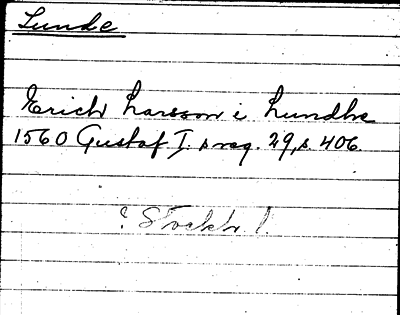 Lunde
Erich Larsson i Lundhe
1560 Gustaf I. s reg. 29, s. 406.
? Stockh. l.